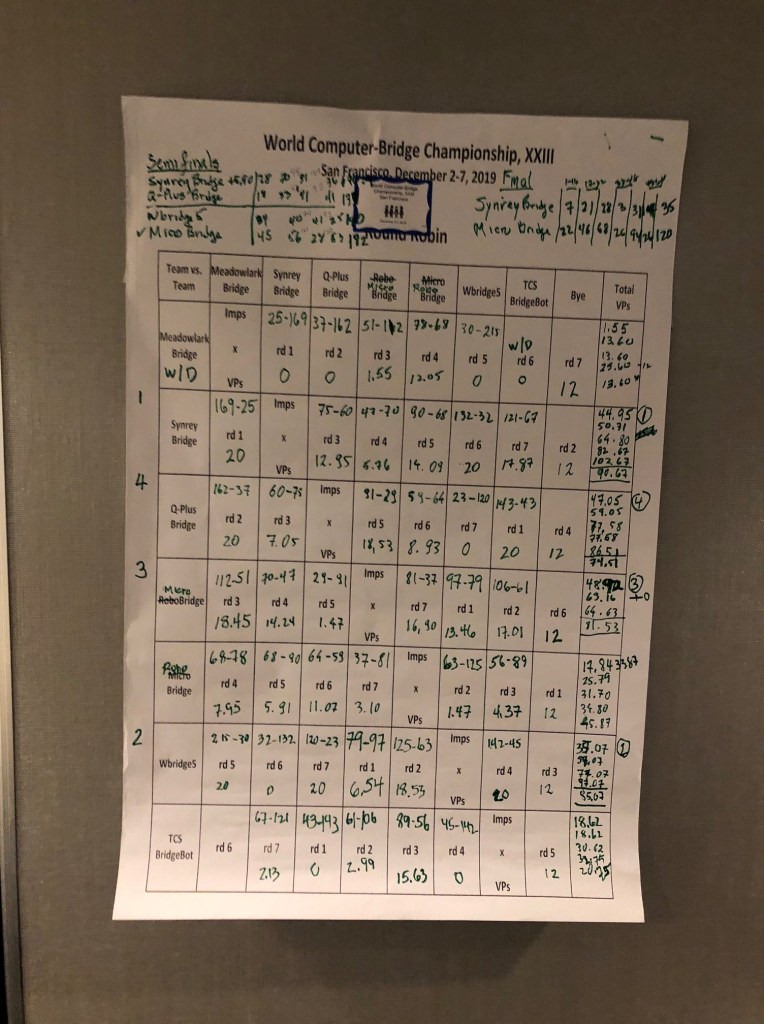 World Computer-Bridge Championship, XXIII
San Francisco, December 2-7, 2019
Semi finals
Synrey Bridge
Q-Plus Bridge
Wbridge5
✓ Micro Bridge 45 56
Final
Synrey Bridge 7 21 28 3 35
Micro Bridge 22 46 68 26 120
Round Robin
Team vs. Team Meadowlark Bridge Synrey Bridge Q-Plus Bridge Robo Micro Bridge Micro Robo Bridge Wbridge5 TCS BridgeBot Bye Total VPs
Meadowlark Bridge W/D
Imps 25-169 37-162 51-112 78-68 30-215 W/D
x rd 1 rd 2 rd 3 rd 4 rd 5 rd 6 rd 7
VPs 0 0 1.55 12.05 0 0 12
1.55
13.60
13.60
25.60 -12
13.60
1
Synrey Bridge
169-25 Imps 75-60 47-70 90-68 132-32 121-67
rd 1 x rd 3 rd 4 rd 5 rd 6 rd 7 rd 2
20 VPs 12.95 5.76 14.09 20 17.87 12
44.95 1
50.71
64.80
82.67
102.67
90.67
4
Q-Plus Bridge
162-37 60-75 Imps 91-29 59-64 23-120 143-43
rd 2 rd 3 x rd 5 rd 6 rd 7 rd 1 rd 4
20 7.05 VPs 18,53 8.93 0 20 12
47.05 4
59.05
77,58
77.58
86.51
74.51
3
Micro RoboBridge
112-51 70-47 29-91 Imps 81-37 97-79 106-61
rd 3 rd 4 rd 5 x rd 7 rd 1 rd 2 rd 6
18.45 14.24 1.47 VPs 16,90 13.46 17.01 12
48.92 3
63.16
64.63
81.53
Robo Micro Bridge
68-78 68-90 64-59 37-81 Imps 63-125 56-89
rd 4 rd 5 rd 6 rd 7 x rd 2 rd 3 rd 1
7.95 5.91 11.07 3.10 VPs 1.47 4.37 12
17,84
25.79
31.70
34.80
45.87
2
Wbridge5
215-30 32-132 120-23 79-97 125-63 Imps 142-45
rd 5 rd 6 rd 7 rd 1 rd 2 x rd 4 rd 3
20 0 20 6,54 18.53 VPs 20 12
77.07
97.07
85.07
TCS BridgeBot
67-121 43-143 61-106 89-56 45-142 Imps
rd 6 rd 7 rd 1 rd 2 rd 3 rd 4 x rd 5
2.13 0 2.99 15.63 0 VPs 12
18.62
18.62
30.62